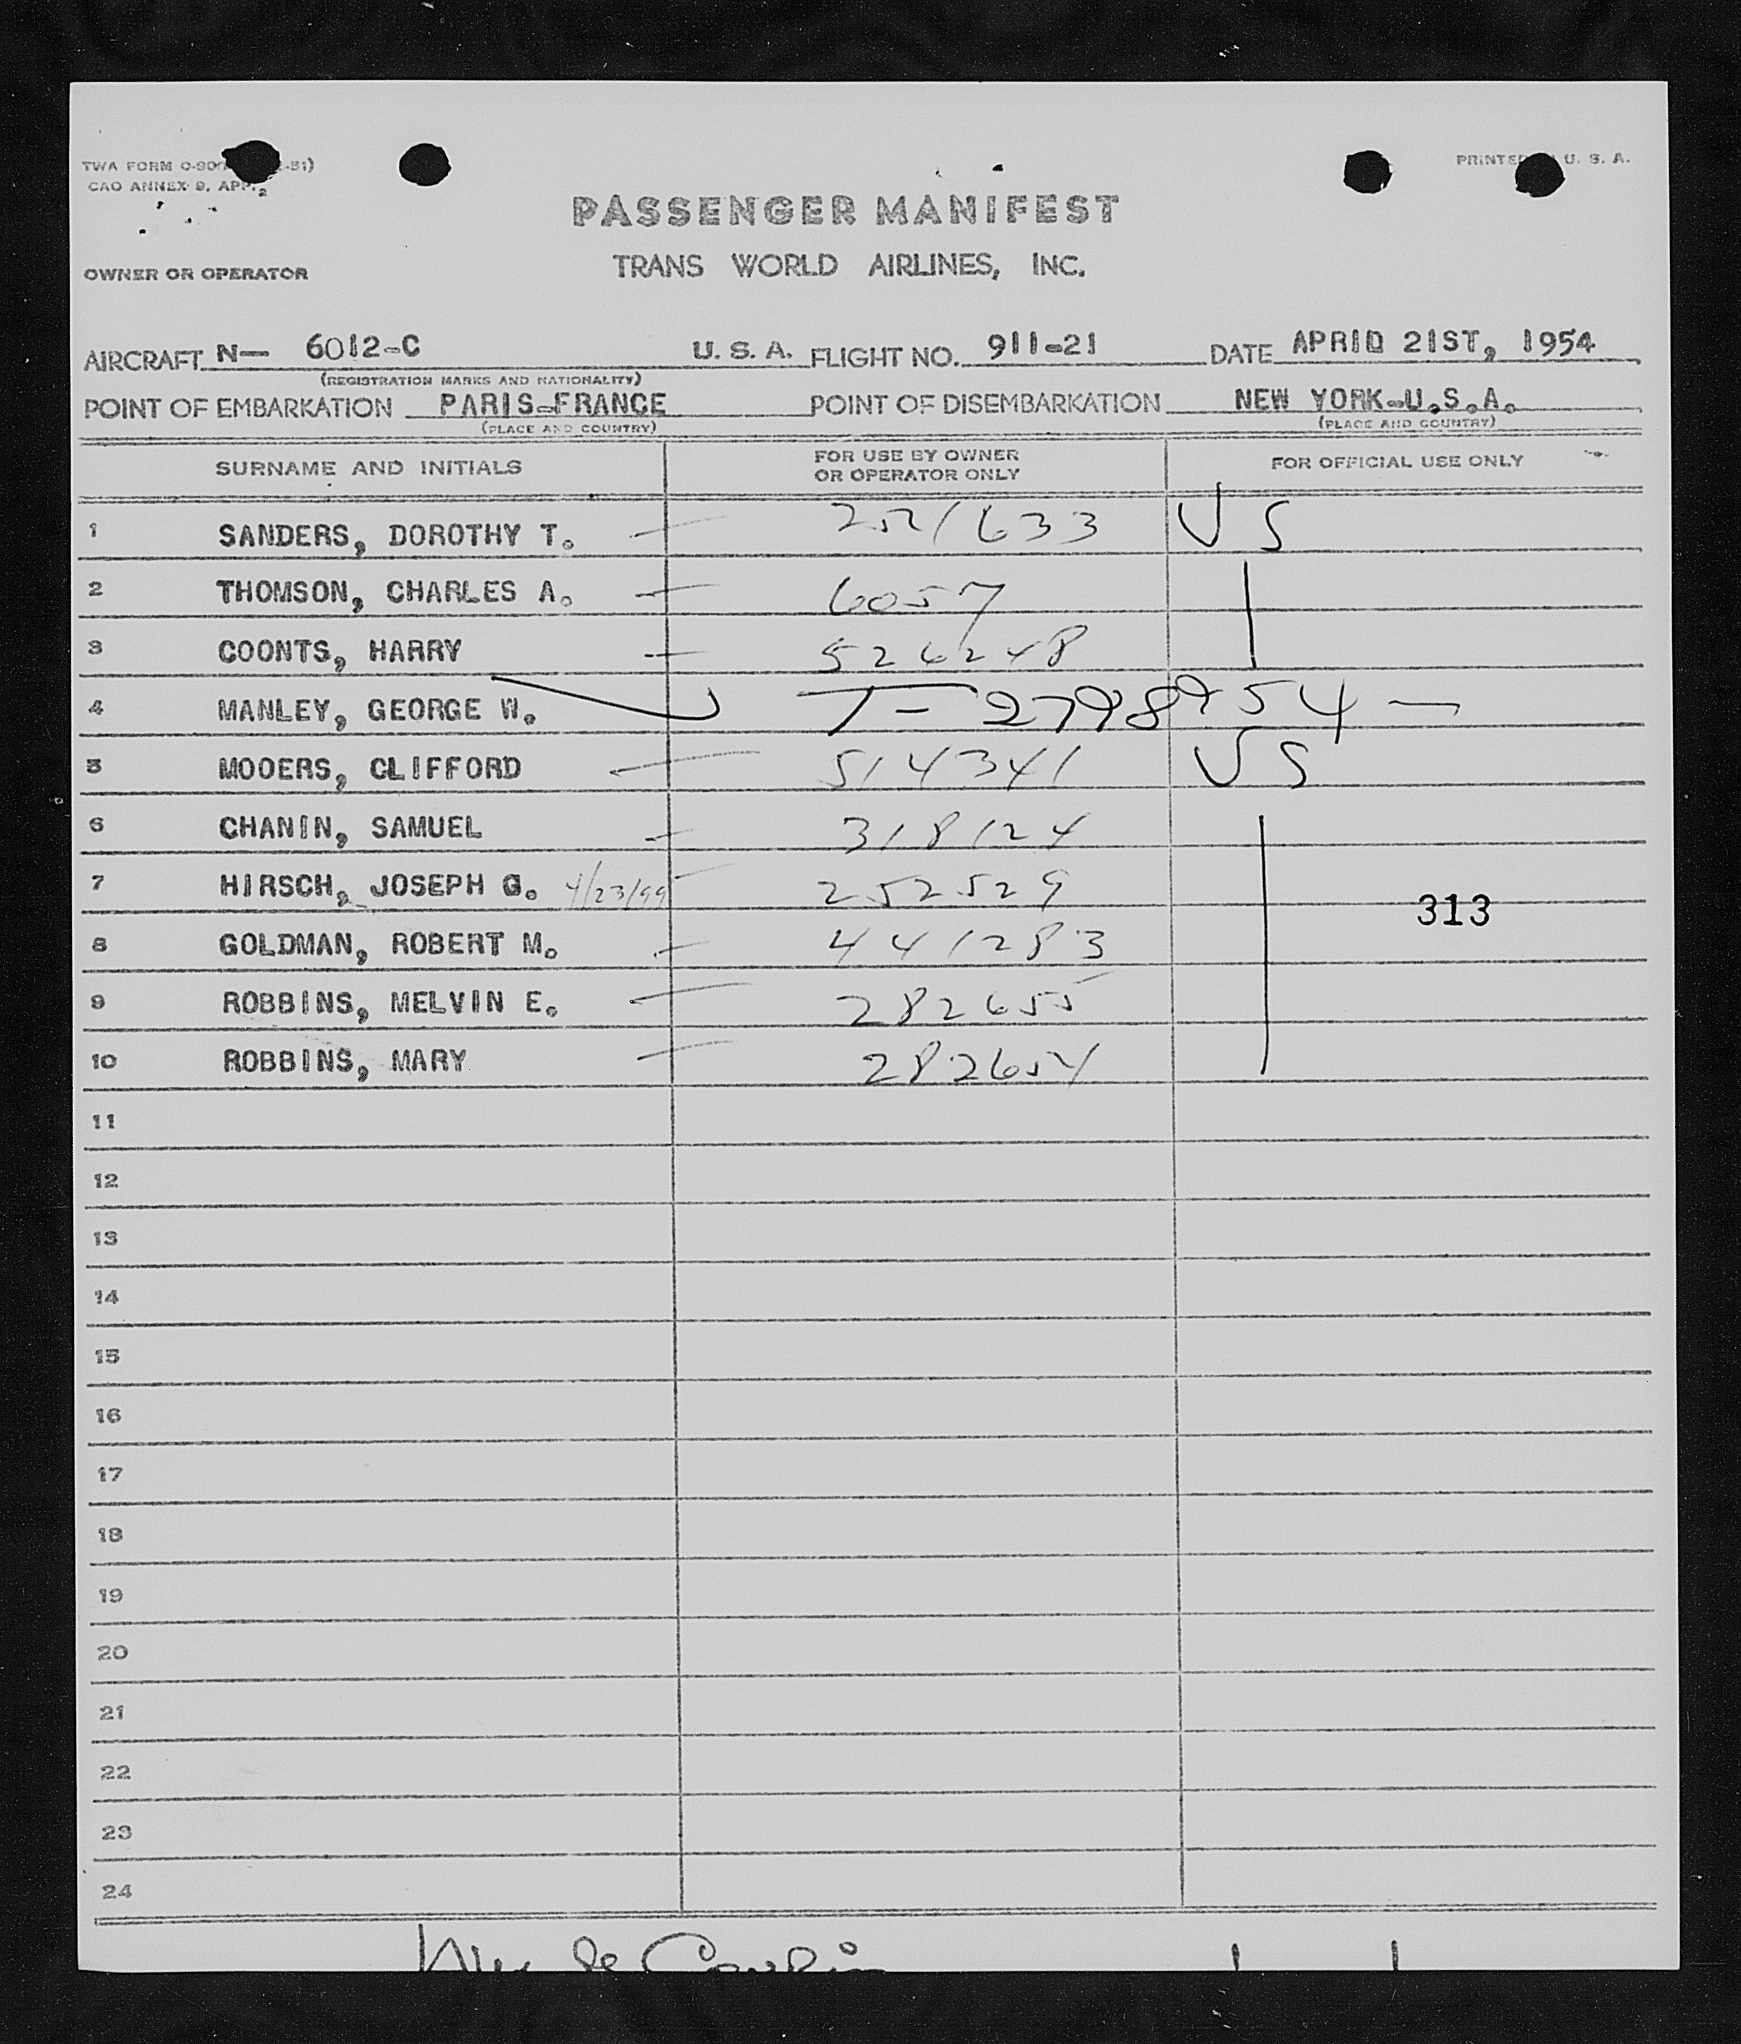 TWA FORM O-900 -51)
CAO ANNEX 9, APP. 2
PRINTED U. S. A.
PASSENGER MANIFEST
TRANS WORLD AIRLINES, INC.
OWNER OR OPERATOR
AIRCRAFT N— 6012-C U. S. A. FLIGHT NO. 911-21 DATE APRIL 21ST, 1954
(REGISTRATION MARKS AND NATIONALITY)
POINT OF EMBARKATION PARIS-FRANCE POINT OF DISEMBARKATION NEW YORK-U.S.A.
(PLACE AND COUNTRY) (PLACE AND COUNTRY)
SURNAME AND INITIALS FOR USE BY OWNER OR OPERATOR ONLY FOR OFFICIAL USE ONLY
1 SANDERS, DOROTHY T. — 2521633 US
2 THOMSON, CHARLES A. — 6057
3 COONTS, HARRY — 526248
4 MANLEY, GEORGE W. T-2798954 —
5 MOOERS, CLIFFORD — 514341 US
6 CHANIN, SAMUEL — 318124
7 HIRSCH, JOSEPH G. 4/23/99 — 252529
313
8 GOLDMAN, ROBERT M. — 441283
9 ROBBINS, MELVIN E. — 282655
10 ROBBINS, MARY — 282654
11
12
13
14
15
16
17
18
19
20
21
22
23
24